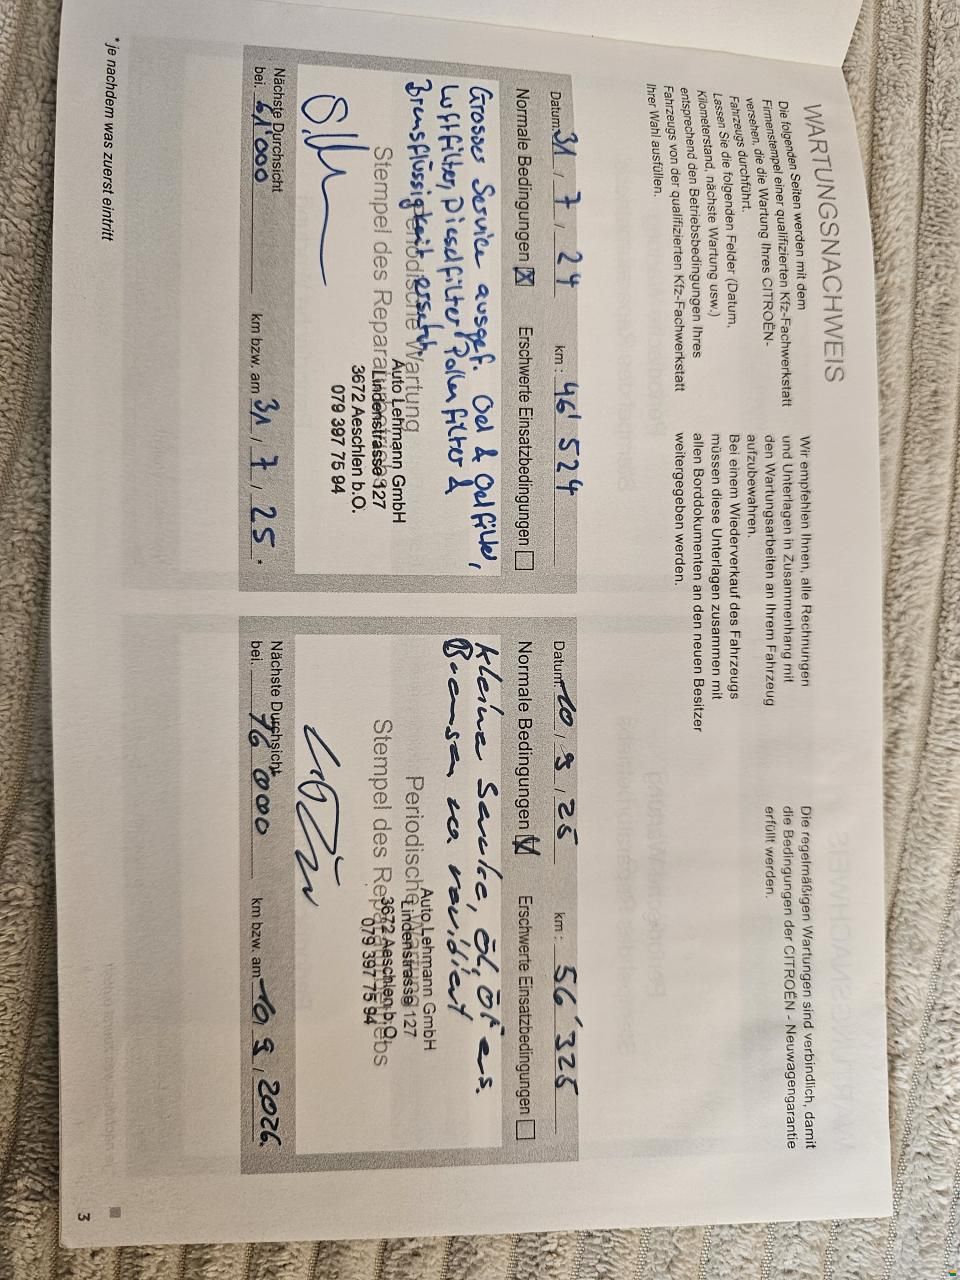 WARTUNGSNACHWEIS
Die folgenden Seiten werden mit dem
Firmenstempel einer qualifizierten Kfz-Fachwerkstatt
versehen, die die Wartung Ihres CITROËN-
Fahrzeugs durchführt.
Lassen Sie die folgenden Felder (Datum,
Kilometerstand, nächste Wartung usw.)
entsprechend den Betriebsbedingungen Ihres
Fahrzeugs von der qualifizierten Kfz-Fachwerkstatt
Ihrer Wahl ausfüllen.
Wir empfehlen Ihnen, alle Rechnungen
und Unterlagen in Zusammenhang mit
den Wartungsarbeiten an Ihrem Fahrzeug
aufzubewahren.
Bei einem Wiederverkauf des Fahrzeugs
müssen diese Unterlagen zusammen mit
allen Borddokumenten an den neuen Besitzer
weitergegeben werden.
Die regelmäßigen Wartungen sind verbindlich, damit
die Bedingungen der CITROËN - Neuwagengarantie
erfüllt werden.
Datum: 31 / 7 / 24 km: 46'524
Normale Bedingungen Erschwerte Einsatzbedingungen
Grosser Service ausgef. Oel & Oelfilter,
Luftfilter, Dieselfilter, Pollenfilter &
Bremsflüssigkeit ersetzt.
Periodische Wartung
Stempel des Reparaturbetriebs
Auto Lehmann GmbH
Lindenstrasse 127
3672 Aeschlen b.O.
079 397 75 94
Nächste Durchsicht
bei. 61'000 km bzw. am 31 / 7 / 25 *
Datum: 10 / 9 / 25 km: 56'325
Normale Bedingungen Erschwerte Einsatzbedingungen
Kleine Service, Öl, ÖF ers.
Bremsen revidiert
Periodische Wartung
Stempel des Reparaturbetriebs
Auto Lehmann GmbH
Lindenstrasse 127
3672 Aeschlen b.O.
079 397 75 94
Nächste Durchsicht
bei. 76'000 km bzw. am 10 / 9 / 2026.
* je nachdem was zuerst eintritt
3